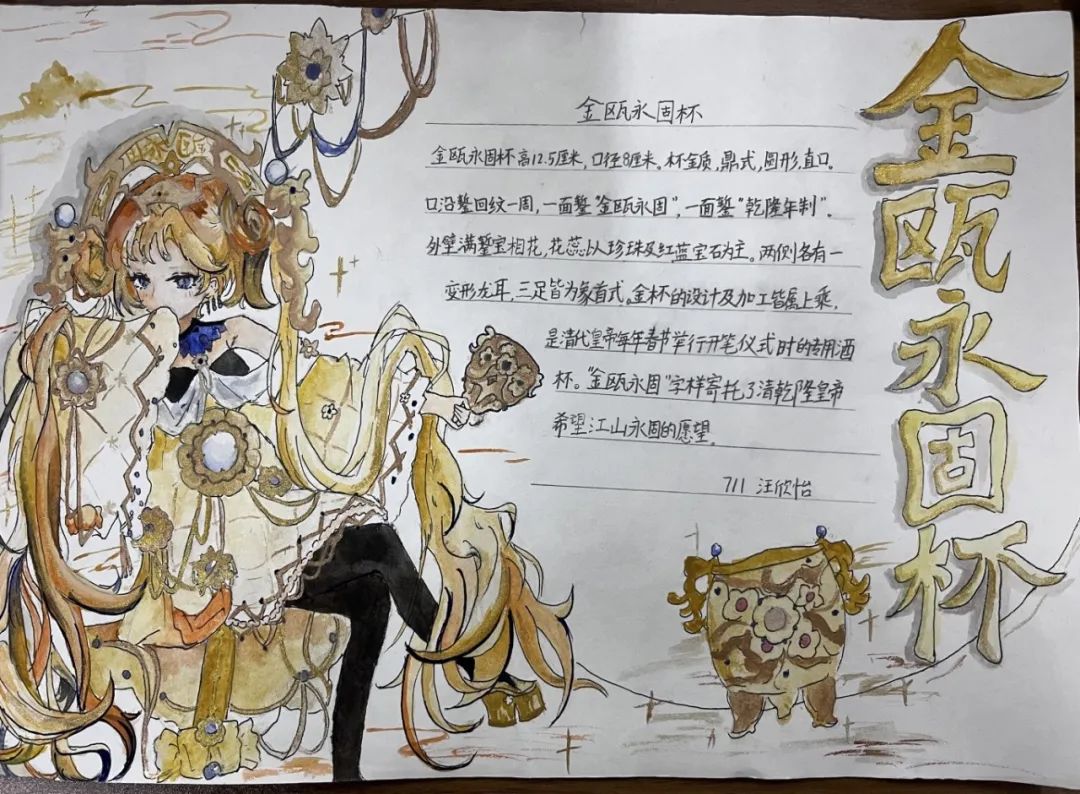 金瓯永固杯
金瓯永固杯高12.5厘米，口径8厘米。杯金质，鼎式，圆形，直口。
口沿錾回纹一周，一面錾“金瓯永固”，一面錾“乾隆年制”。
外壁满錾宝相花，花蕊以珍珠及红蓝宝石为主。两侧各有一
变形龙耳，三足皆为象首式。金杯的设计及加工皆属上乘，
是清代皇帝每年春节举行开笔仪式时的专用酒
杯。“金瓯永固”字样寄托了清乾隆皇帝
希望江山永固的愿望。
711 汪欣怡
金瓯永固杯